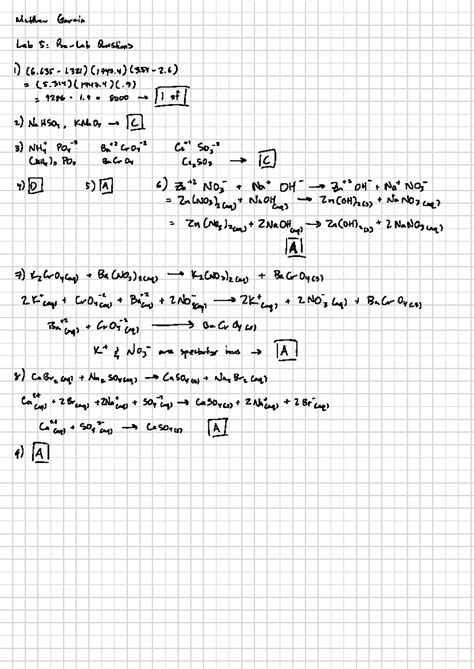 Matthew
Lab 5: Pre-Lab Questions
1) (6.635 - 1.321) (1747.4) (3.5 - 2.6)
= (5.314)(1747.4)(.9)
= 9286 · 1.9 = 8000 → 1 sf
2) NaHSO₄, KMnO₄ → C
3) NH₄⁺ PO₄⁻³ Ba⁺² CrO₄⁻² Cs⁺¹ SO₃⁻²
(NH₄)₃ PO₄ BaCrO₄ Cs₂SO₃ → C
4) D 5) A 6) Zn⁺² NO₃⁻ + Na⁺ OH⁻ → Zn⁺² OH⁻ + Na⁺ NO₃⁻
= Zn(NO₃)₂(aq) + NaOH(aq) → Zn(OH)₂(s) + NaNO₃(aq)
= Zn(NO₃)₂(aq) + 2NaOH(aq) → Zn(OH)₂(s) + 2NaNO₃(aq)
A
7) K₂CrO₄(aq) + Ba(NO₃)₂(aq) → K₂(NO₃)₂(aq) + BaCrO₄(s)
2K⁺(aq) + CrO₄⁻²(aq) + Ba⁺²(aq) + 2NO₃⁻(aq) → 2K⁺(aq) + 2NO₃⁻(aq) + BaCrO₄(s)
Ba⁺²(aq) + CrO₄⁻²(aq) → BaCrO₄(s)
K⁺ & NO₃⁻ are spectator ions → A
8) CaBr₂(aq) + Na₂SO₄(aq) → CaSO₄(s) + Na₂Br₂(aq)
Ca²⁺(aq) + 2Br⁻(aq) + 2Na⁺(aq) + SO₄⁻²(aq) → CaSO₄(s) + 2Na⁺(aq) + 2Br⁻(aq)
Ca²⁺(aq) + SO₄²⁻(aq) → CaSO₄(s) A
9) A